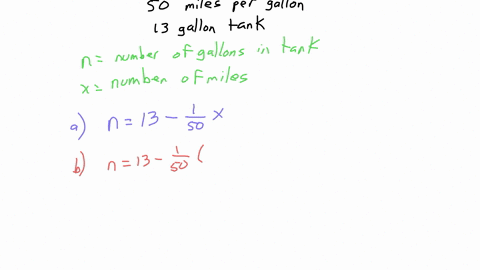 50 miles per gallon
13 gallon tank
n = number of gallons in tank
x = number of miles
a) n = 13 - 1/50 x
b) n = 13 - 1/50 (